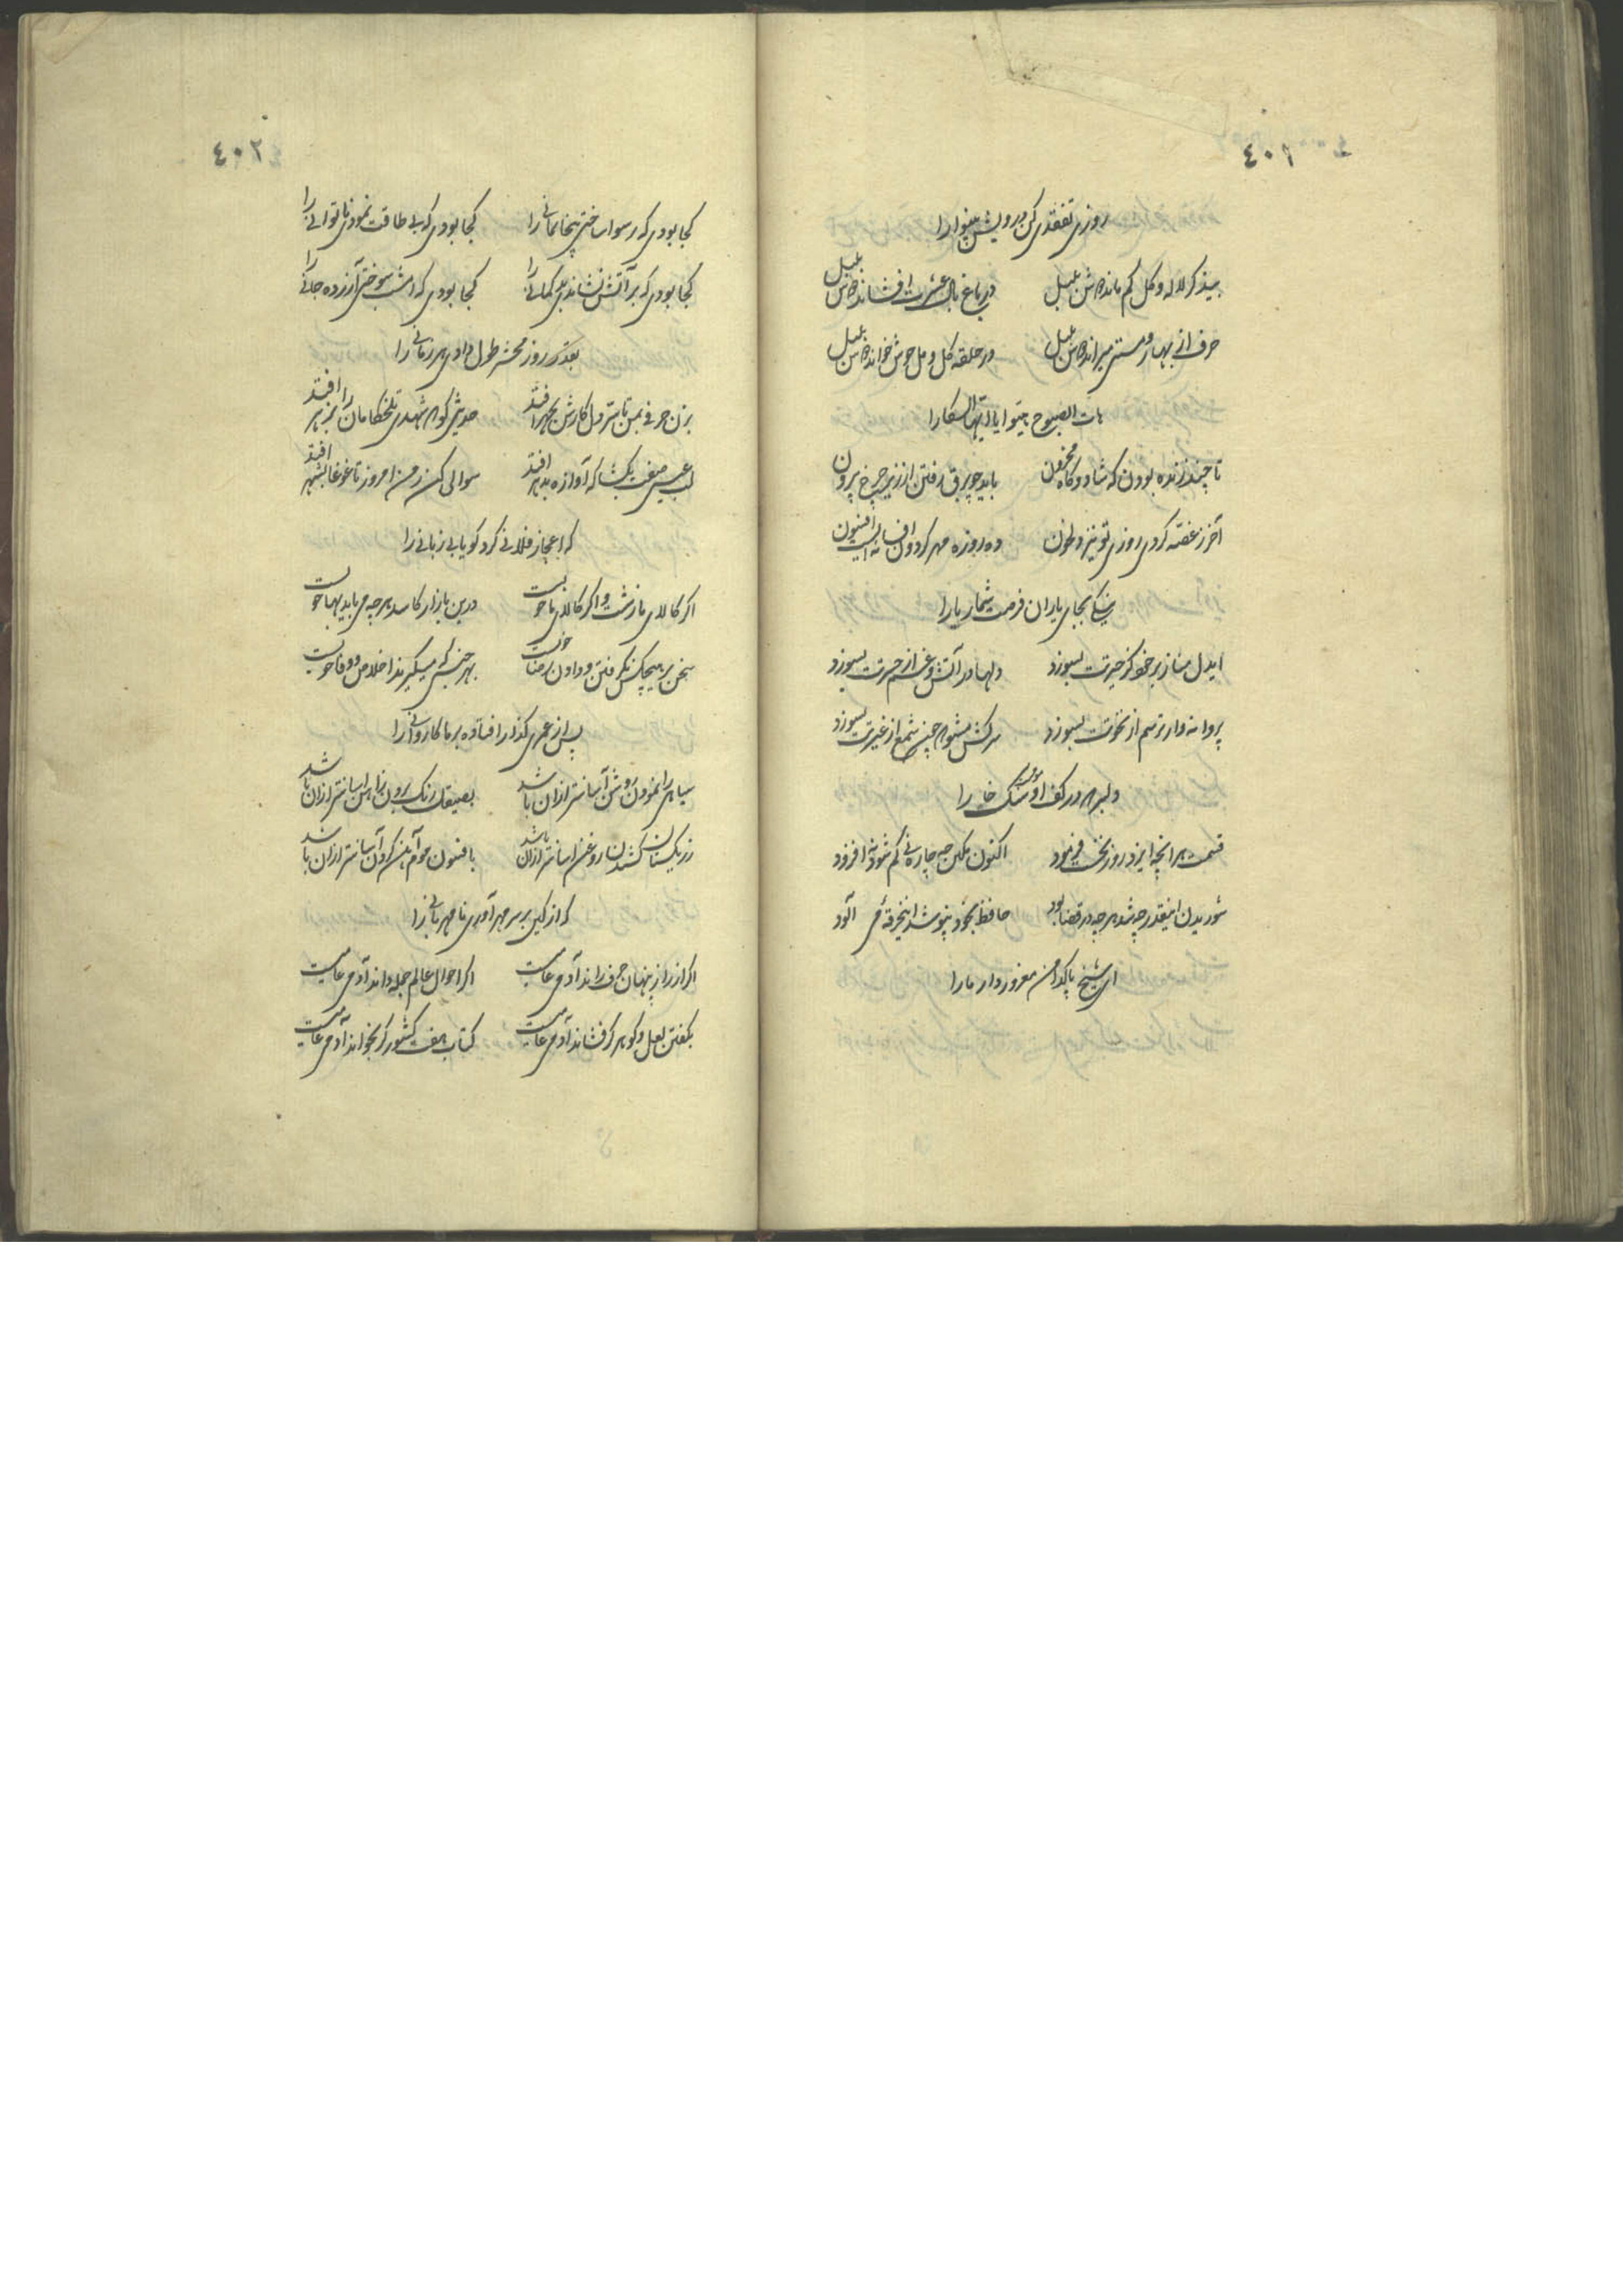 ٤٠١
روزی تفقدی کن درویش بینوا را
بیذکر لاله و گل کم مانده‌ش بلبل در باغ بال عشرت افشانده‌ش بلبل
حرف از بهار و مستی میرانده‌ش بلبل در حلقه گل و مل خوش خوانده‌ش بلبل
هات الصبوح هبوا یا ایها السکارا
تا چند زنده بودن که شاد و گاه محزون باید چو برق رفتن از زیر چرخ بیرون
آخر ز غصه کردی روزی تو نیز دلخون ده روزه مهر گردون افسانه ایست افسون
نیکی بجای یاران فرصت شمار یارا
ایدل مناز بر خود کز حیرتت بسوزد دلها در آتش و غم از حسرتت بسوزد
پروانه وار ترسم از نخوتت بسوزد سرکش مشو که چون شمع از غیرتت بسوزد
دلبر که در کف او موم است سنگ خارا
قسمت هر انچه ایزد روز نخست فرمود اکنون مکن چه چاره نی کم شود نه افزود
شوریدن اینقدر چه شد هر چه در قضا بود حافظ بخود نپوشد اینخرقه می آلود
ای شیخ پاکدامن معذور دار ما را
٤٠٢
کجا بودی که رسوا ساختی بیخانمانی را کجا بودی که بی طاقت نمودی ناتوانی را
کجا بودی که بر آتش نشاندی بی کمانی را کجا بودی که امشب سوختی آزرده جانی را
بقدر روز محشر طول دادی هر زمانی را
بزن حرفی بمن تا ستر دل کارش بجهر افتد حدیثی گو که شهدی تلخکامان را بزهر افتد
لب عیسی صفت بگشا که آوازه بدهر افتد سوالی کن ز من امروز تا غوغا بشهر افتد
که اعجاز فلانی کرد گویا بی زبانی را
اگر کالای ما زشت و اگر کالای ما خوبست درین بازار کاسد هر چه می باید بها خوبست
سخن بر هیچکس نگرفتن و دادن رضا خوبست بهر جنسی که میگیرند اخلاص و وفا خوبست
پس از عمری گذار افتاده بر ما کاروانی را
سیاهی را نمودن روشن آسانتر ازان باشد بصیقل رنگ برون ز اهن اسانتر ازان باشد
ز ریکستان کشیدن روغن اسانتر ازان باشد بافسون موم آهن کردن آسانتر ازان باشد
که از کین بر سر مهر آوری نامهربانی را
اگر از راز پنهان حرف راند آدمی عامیست اگر احوال عالم جمله داند آدمی عامیست
بگفتن لعل و گوهر گر فشاند آدمی عامیست کتاب هفت کشور گر بخواند آدمی عامیست